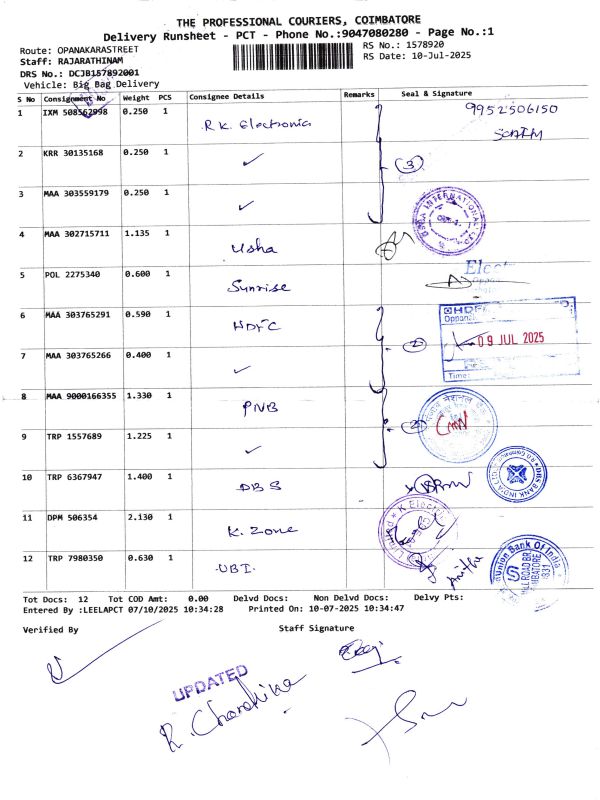 THE PROFESSIONAL COURIERS, COIMBATORE
Delivery Runsheet - PCT - Phone No.:9047080280 - Page No.:1
Route: OPANAKARASTREET
RS No.: 1578920
Staff: RAJARATHINAM
RS Date: 10-Jul-2025
DRS No.: DCJB157892001
Vehicle: Big Bag Delivery
S No Consignment No Weight PCS Consignee Details Remarks Seal & Signature
1 IXM 508562998 0.250 1 R K. Electronics 9952506150
2 KRR 30135168 0.250 1 ✓ 3
3 MAA 303559179 0.250 1 ✓
4 MAA 302715711 1.135 1 Usha
5 POL 2275340 0.600 1 Sunrise
6 MAA 303765291 0.590 1 HDFC
09 JUL 2025
7 MAA 303765266 0.400 1 ✓ 2
Time:
8 MAA 9000166355 1.330 1 PNB 2
9 TRP 1557689 1.225 1 ✓
10 TRP 6367947 1.400 1 DBS
DBS BANK INDIA LTD
11 DPM 506354 2.130 1 K. Zone
12 TRP 7980350 0.630 1 UBI. Anitha
Union Bank Of India
Tot Docs: 12 Tot COD Amt: 0.00 Delvd Docs: Non Delvd Docs: Delvy Pts:
Entered By :LEELAPCT 07/10/2025 10:34:28 Printed On: 10-07-2025 10:34:47
Verified By Staff Signature
UPDATED